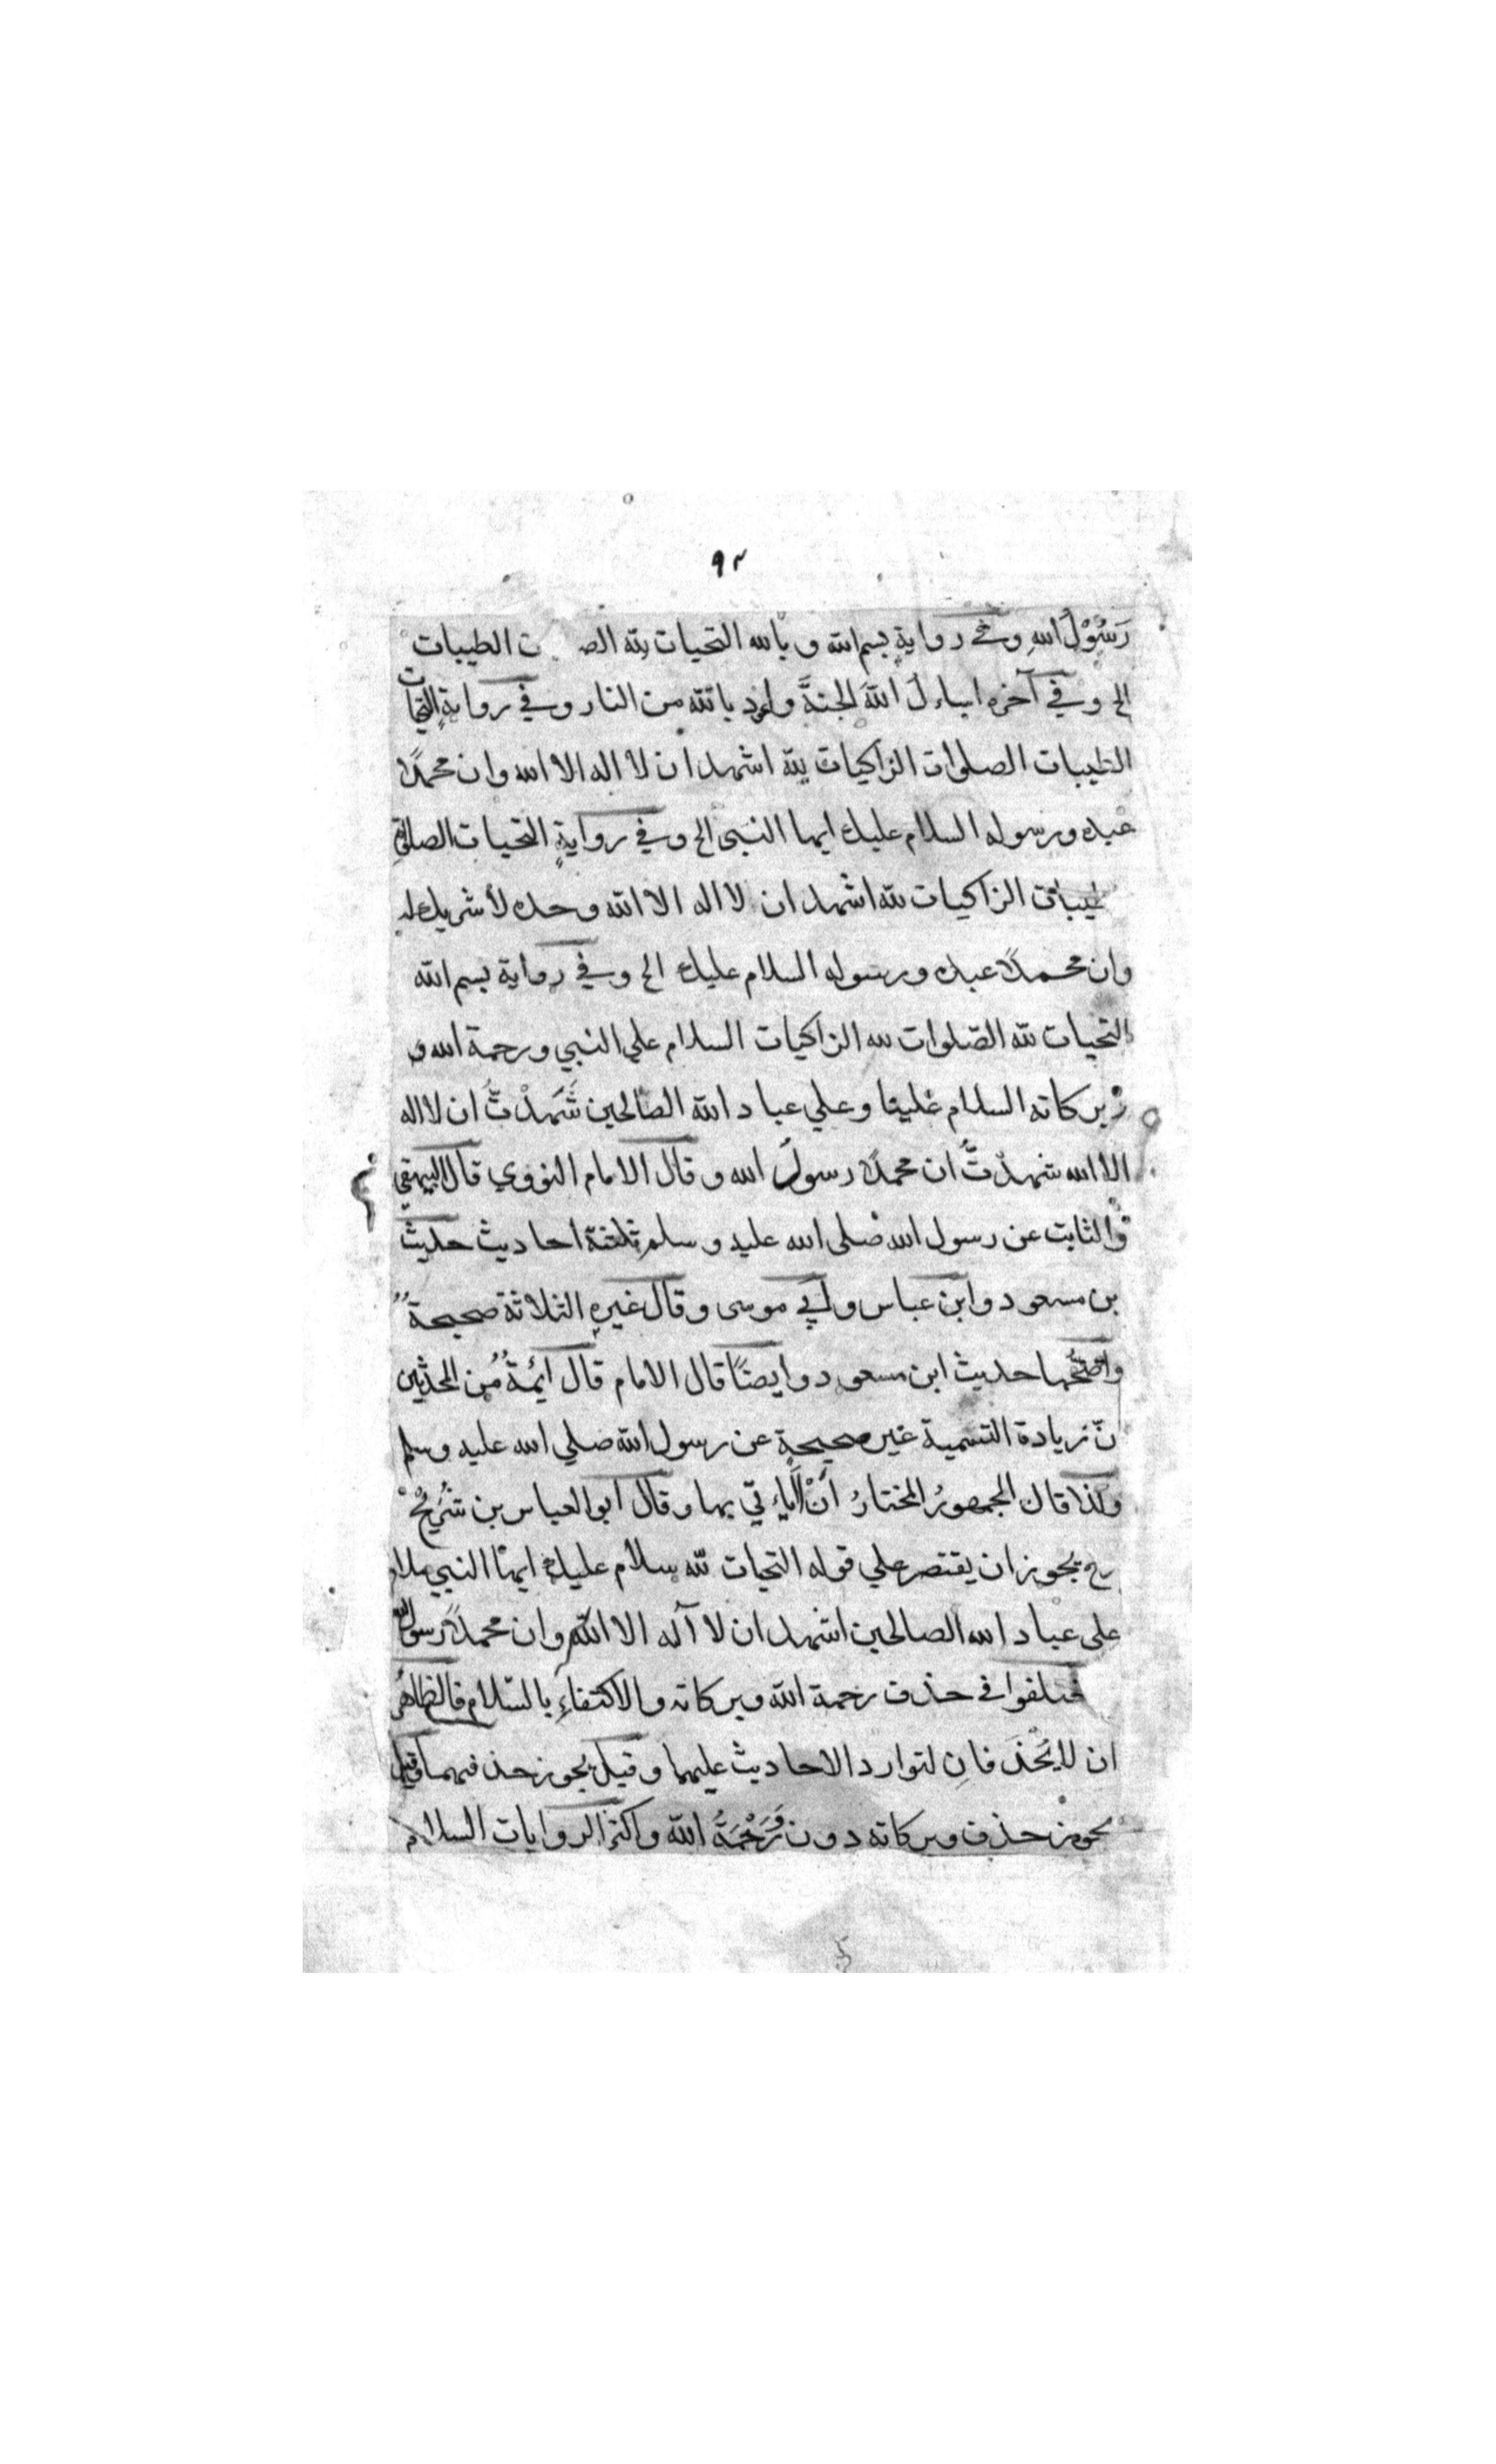 ٩٢
رَسُوْلُ اللهِ وفي روايةٍ بسم الله وبالله التحيات لله الطيبات
الخ وفي آخره اساءلُ اللهَ الجنةَ واعوذ بالله من النار وفي روايةٍ التحيات
الطيبات الصلوات الزاكيات لله اشهد ان لا اله الا الله وان محمدًا
عبده ورسوله السلام عليك ايها النبي الخ وفي روايةٍ التحيات الصلوات
طيبات الزاكيات لله اشهد ان لا اله الا الله وحده لا شريك له
وان محمدًا عبده ورسوله السلام عليك الخ وفي رواية بسم الله
التحيات لله الصّلوات لله الزاكيات السلام علي النبي ورحمة الله و
بركاته السلام علينا وعلي عباد الله الصالحين شَهِدْتُّ ان لا اله
الا الله شهدتُّ ان محمدًا رسولُ الله وقال الامام النووي قال البيهقي
والثابت عن رسول الله صلى الله عليه وسلم ثلثة احاديث حديث
بن مسعود وابن عباس وابي موسى وقال غيرِه الثلاثة صحيحةٌ
واصحُّها حديث ابن مسعود وايضًا قال الامام قال ائمةٌ من المحدثين
نّ زيادة التسمية غير صحيحةٍ عن رسول الله صلي الله عليه وسلم
ولذا قال الجمهورُ المختارُ انْ لَّا ياءتي بها وقال ابو العباس بن شُرَيْحْ
رح يجوز ان يقتصر علي قوله التحيات لله سلام عليك ايها النبي سلام
على عباد الله الصالحين اشهد ان لا آله الا الله وان محمدًا رسول الله
ختلفوا في حذف رحمة الله وبركاته والاكتفاءِ بالسّلام فالظاهُر
ان لا يُحْذَفانِ لتوارد الاحاديث عليهما وقيل يجوز حذفهما وقيل
يجوز حذف وبركاته دون وَرَحْمَةُ الله واكثر الروايات السلام